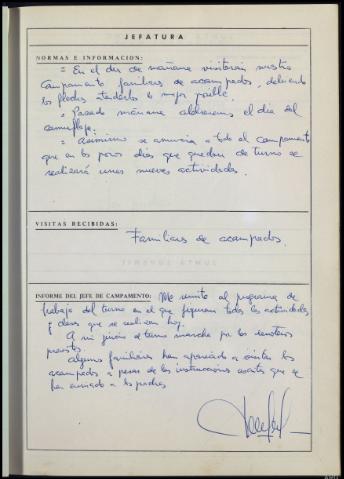 JEFATURA
NORMAS E INFORMACION:
= En el dia de mañana visitarán nuestro
campamento familiares de acampados, debiendo
los flechas atenderles lo mejor posible.
= Pasado mañana celebraremos el dia del
camuflaje.
= Asimismo se anuncia a todo el campamento
que en los pocos dias que quedan de turno se
realizarán unas nuevas actividades.
VISITAS RECIBIDAS:
Familiares de acampados.
INFORME DEL JEFE DE CAMPAMENTO: Me remito al programa de
trabajo del turno en el que figuran todas las actividades
y clases que se realizan hoy.
A mi juicio el turno marcha por los senderos
previstos.
Algunos familiares han aparecido a visitar los
acampados a pesar de las instrucciones que se
han enviado a los padres